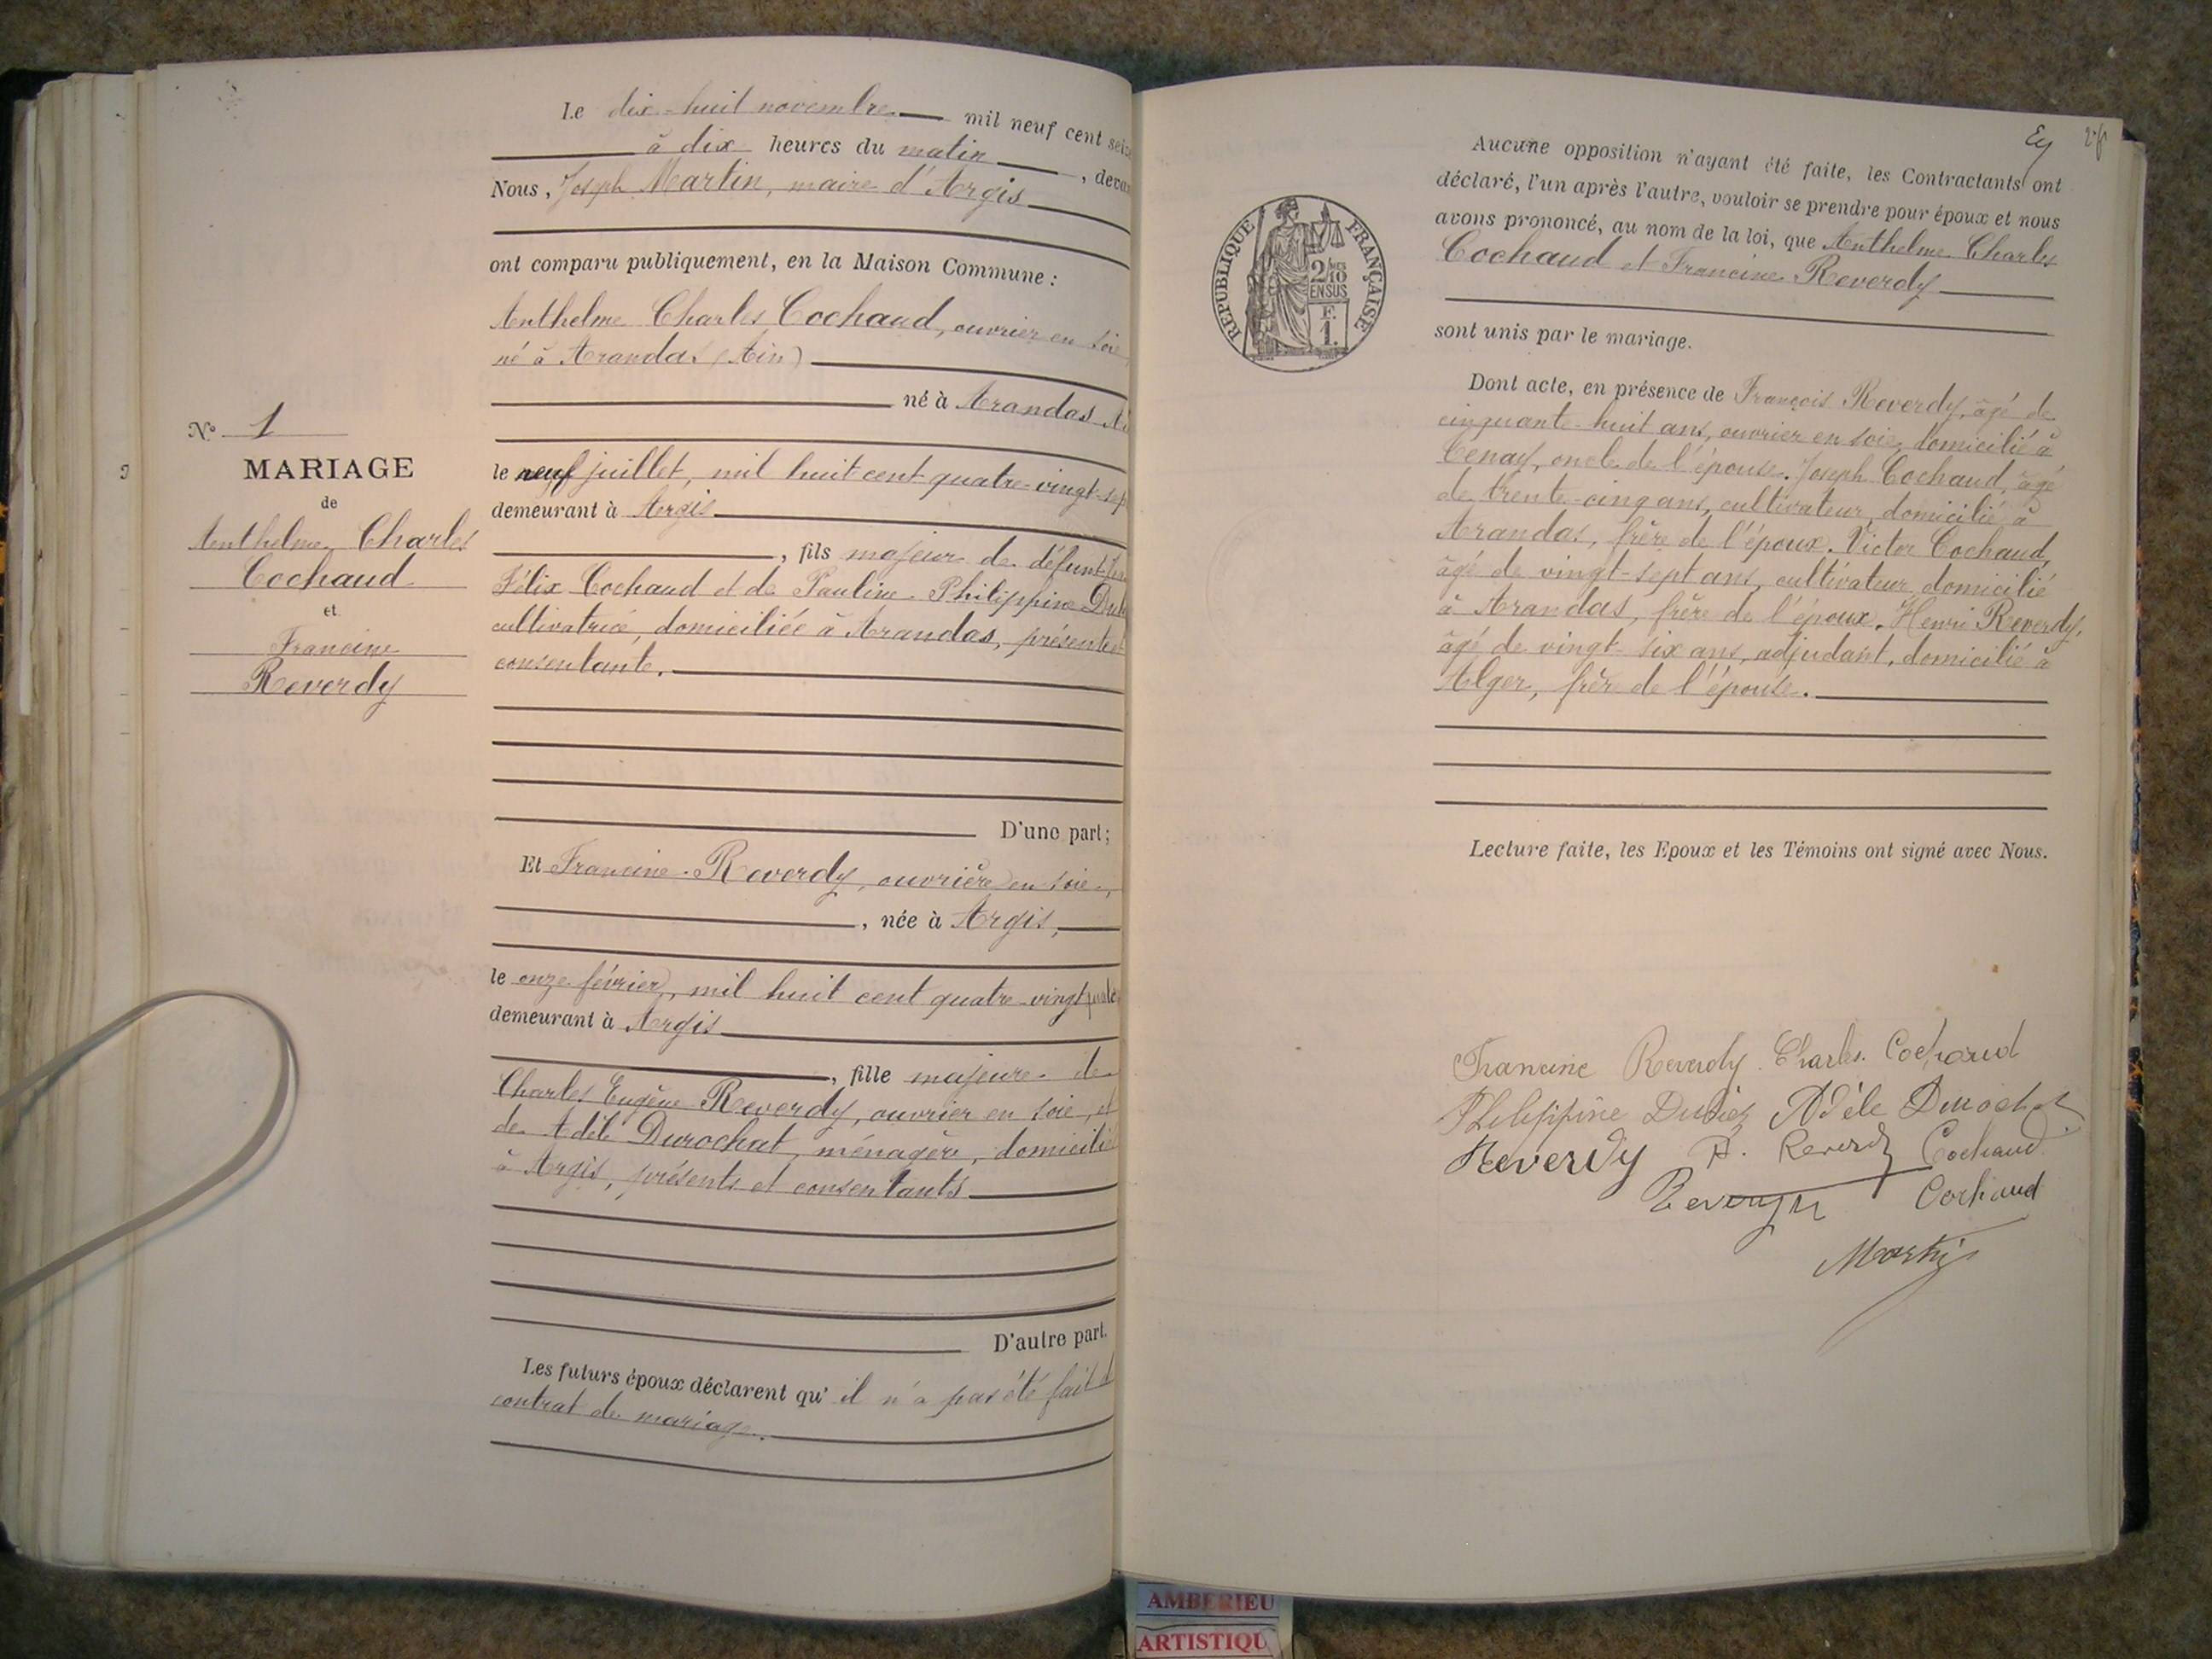 Le dix-huit novembre mil neuf cent seize
à dix heures du matin, devan
Nous, Joseph Martin, maire d'Argis
ont comparu publiquement, en la Maison Commune :
Anthelme Charles Cochaud, ouvrier en soie,
né à Arandas (Ain)
né à Arandas
le neuf juillet, mil huit cent quatre-vingt-sep
demeurant à Argis
, fils majeur de défunt
Félix Cochaud et de Pauline Philippine
cultivatrice, domiciliée à Arandas, présente et
consentante.
D'une part;
Et Francine Reverdy, ouvrière en soie,
, née à Argis,
le onze février, mil huit cent quatre-vingt
demeurant à Argis
, fille majeure de
Charles Eugène Reverdy, ouvrier en soie, et
de Adèle Durochat, ménagère, domicilié
à Argis, présents et consentants
D'autre part.
Les futurs époux déclarent qu'il n'a pas été fait
contrat de mariage.
N° 1
MARIAGE
de
Anthelme Charles
Cochaud
et
Francine
Reverdy
Aucune opposition n'ayant été faite, les Contractants ont
déclaré, l'un après l'autre, vouloir se prendre pour époux et nous
avons prononcé, au nom de la loi, que Anthelme Charles
Cochaud et Francine Reverdy
sont unis par le mariage.
Dont acte, en présence de François Reverdy, âgé de
cinquante-huit ans, ouvrier en soie, domicilié à
Tenay, oncle de l'épouse. Joseph Cochaud, âgé
de trente-cinq ans, cultivateur, domicilié à
Arandas, frère de l'époux. Victor Cochaud,
âgé de vingt-sept ans, cultivateur, domicilié
à Arandas, frère de l'époux. Henri Reverdy,
âgé de vingt-six ans, adjudant, domicilié à
Alger, frère de l'épouse.
Lecture faite, les Epoux et les Témoins ont signé avec Nous.
RÉPUBLIQUE FRANÇAISE
2/10 EN SUS
F. 1.
Francine Reverdy Charles Cochaud
Philippine Dubiez Adèle Durochat
Reverdy H. Reverdy Cochaud
Cochaud
Martin
AMBERIEU
ARTISTIQU